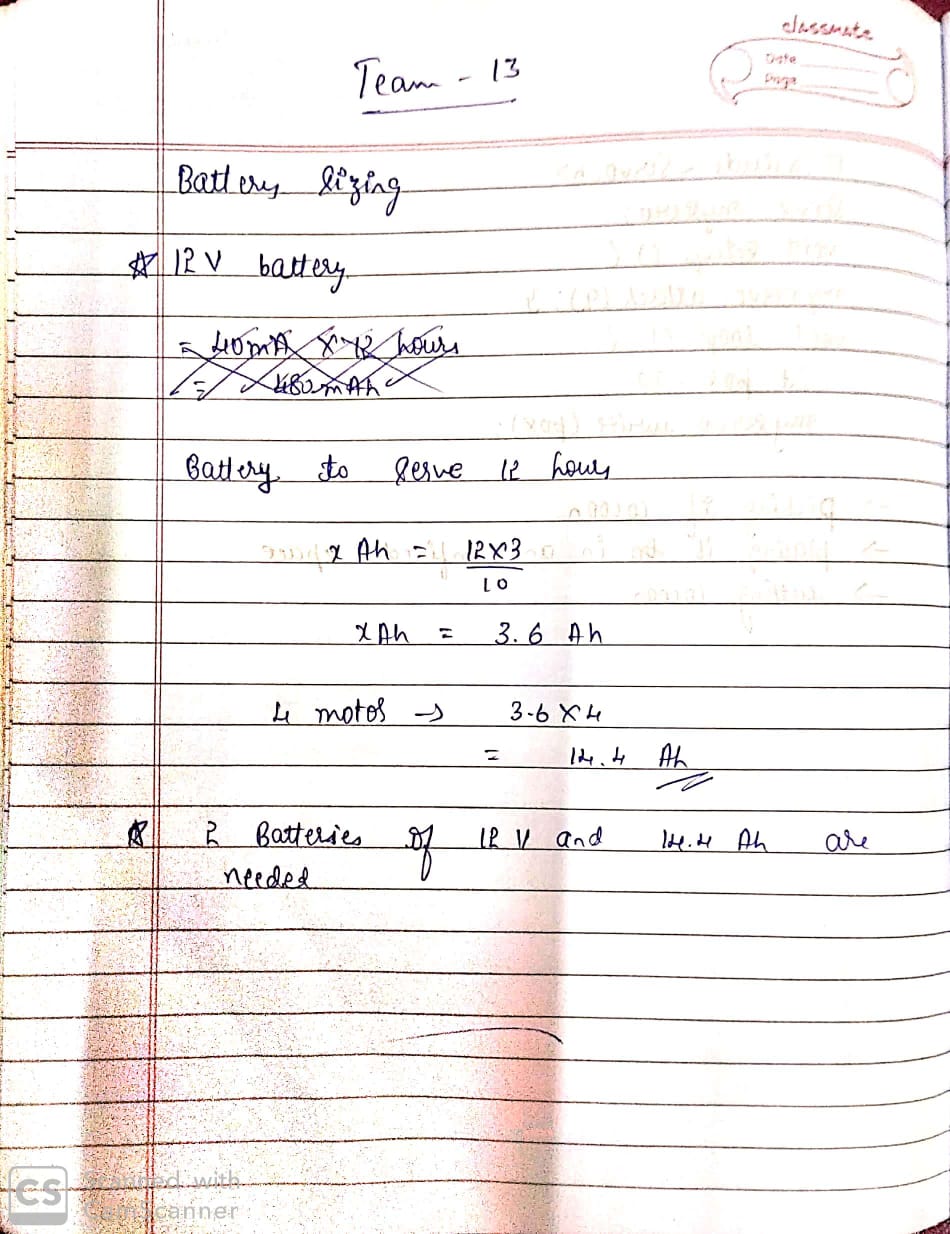 classmate
Date
Page
Team - 13
Battery sizing
☆ 12 V battery
= 40mA x 12 hours
= 480mAh
Battery to serve 12 hours
x Ah = 12x3
10
x Ah = 3.6 Ah
4 motos → 3.6 x 4
= 14.4 Ah
☆ 2 Batteries of 12 V and 14.4 Ah are
needed
CS Scanned with
CamScanner